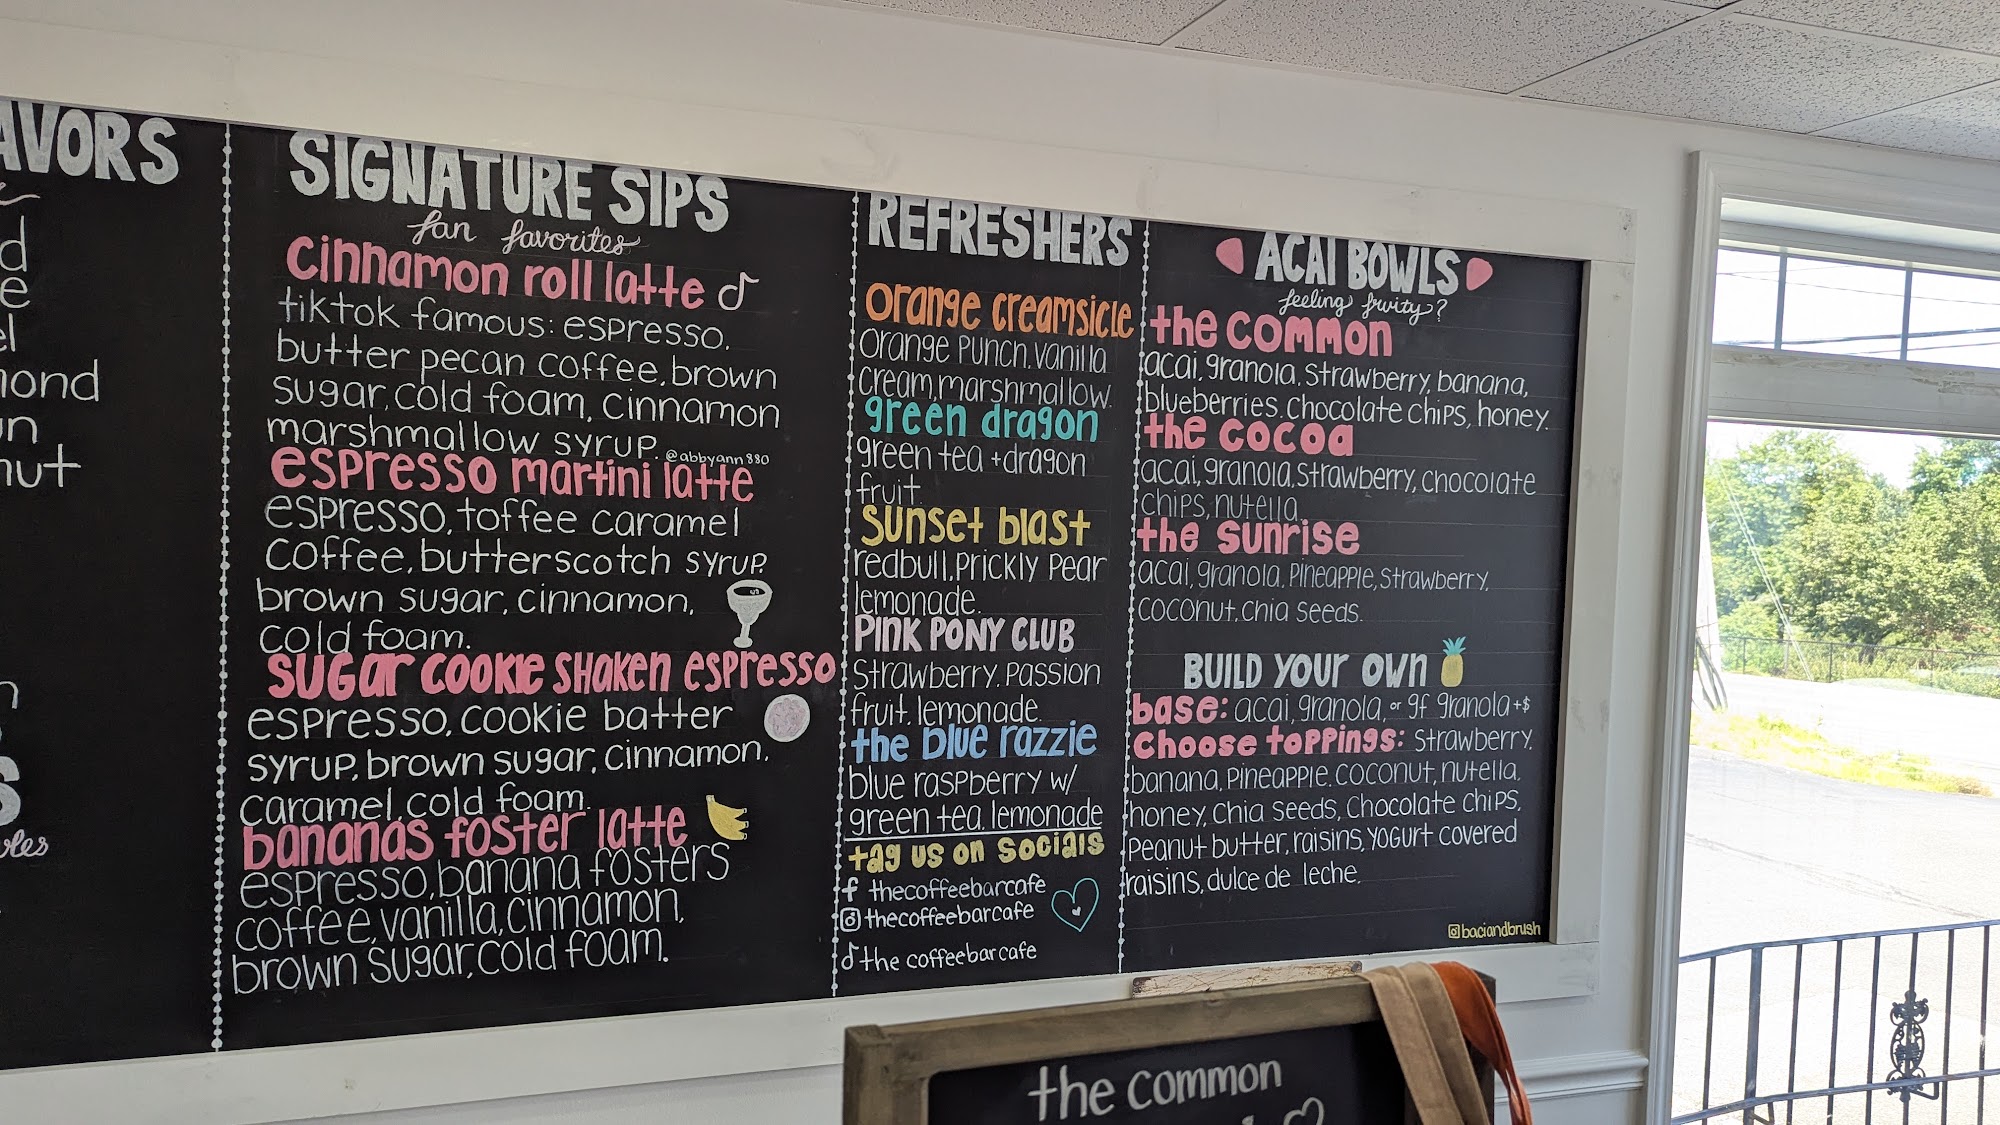 SIGNATURE SIPS
fan favorites
cinnamon roll latte
tiktok famous: espresso,
butter pecan coffee, brown
sugar, cold foam, cinnamon
marshmallow syrup. @abbyann880
espresso martini latte
espresso, toffee caramel
coffee, butterscotch syrup,
brown sugar, cinnamon,
cold foam.
SUGAR COOKIE SHAKEN ESPRESSO
espresso, cookie batter
syrup, brown sugar, cinnamon,
caramel, cold foam.
bananas foster latte
espresso, banana fosters
coffee, vanilla, cinnamon,
brown sugar, cold foam.
REFRESHERS
orange creamsicle
orange punch, vanilla
cream, marshmallow.
green dragon
green tea + dragon
fruit.
sunset blast
redbull, prickly pear
lemonade.
PINK PONY CLUB
strawberry, passion
fruit, lemonade.
the blue razzie
blue raspberry w/
green tea, lemonade
tag us on socials
thecoffeebarcafe
thecoffeebarcafe
the coffeebarcafe
ACAI BOWLS
feeling fruity?
the common
acai, granola, strawberry, banana,
blueberries, chocolate chips, honey.
the cocoa
acai, granola, strawberry, chocolate
chips, nutella.
the sunrise
acai, granola, pineapple, strawberry,
coconut, chia seeds.
BUILD YOUR OWN
base: acai, granola, or gf granola +$
choose toppings: strawberry,
banana, pineapple, coconut, nutella,
honey, chia seeds, chocolate chips,
peanut butter, raisins, yogurt covered
raisins, dulce de leche.
@baciandbrush
the common